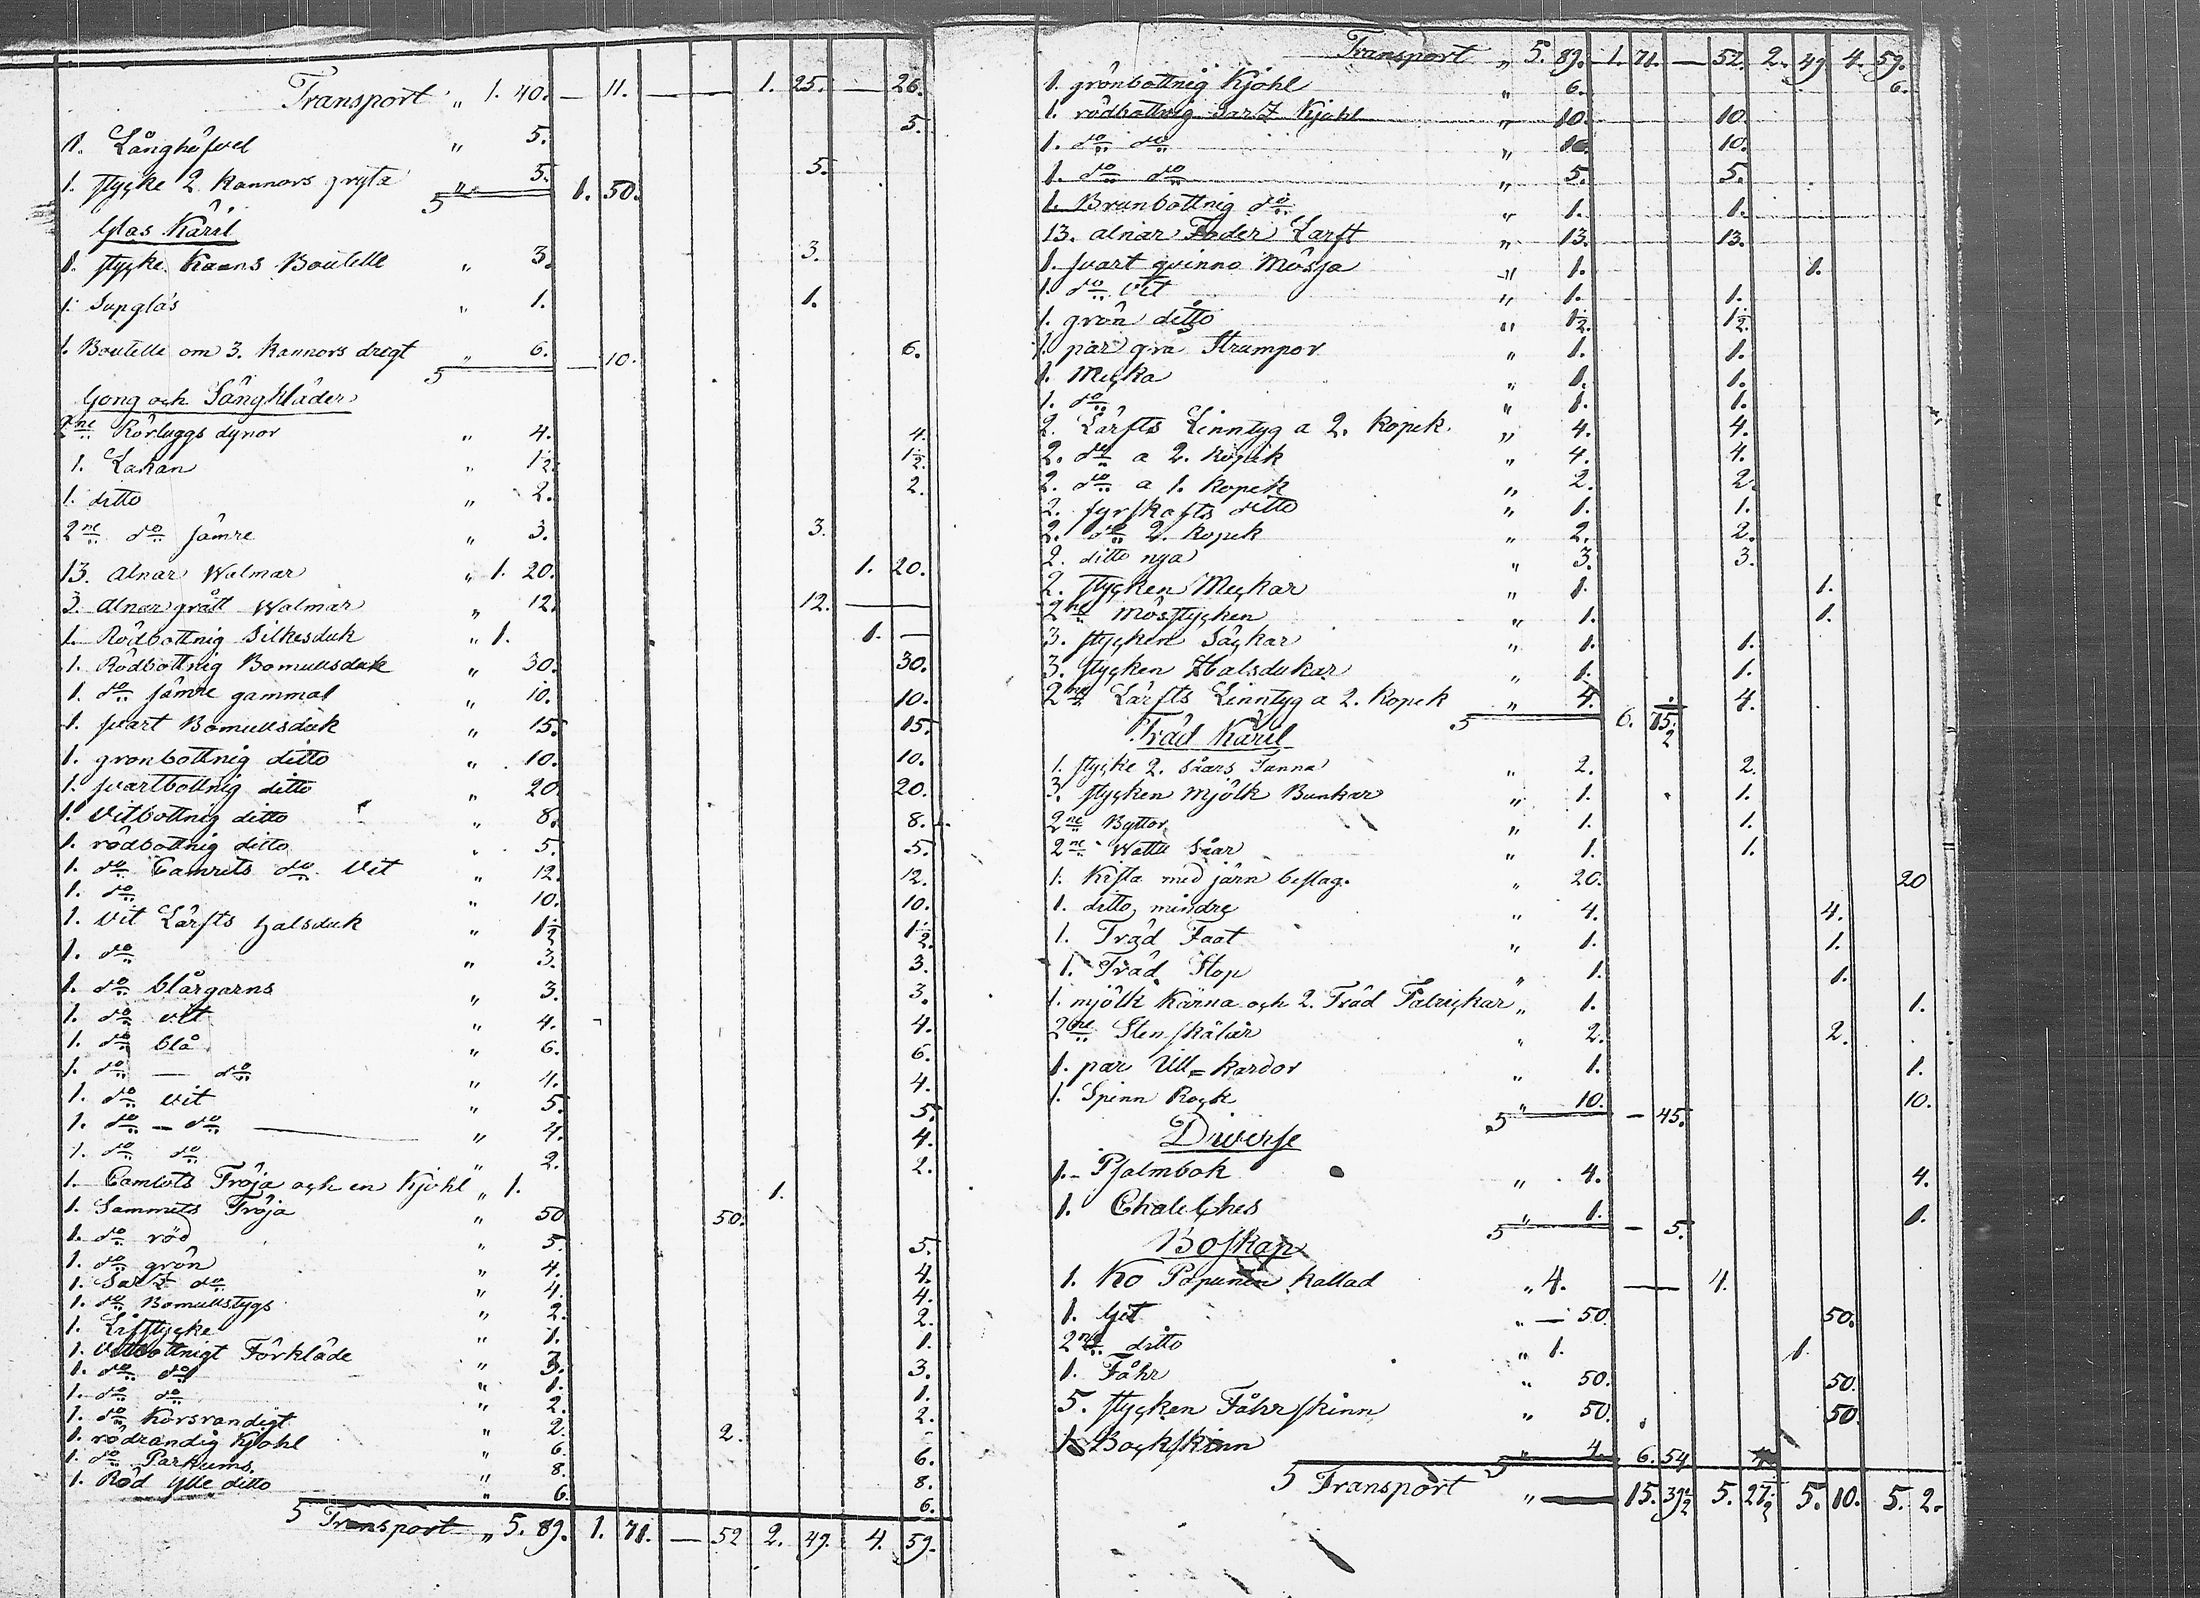 Transport „ 1. 40. — 11. — — 1. 25. — 26.
1. Långhöfvel „ 5. 5.
1. stycke 2 kannors gryta „ 5. 5.
5 1. 50.
Glas Käril
1. stycke Kanns Boutelle „ 3. 3.
1. Supglas „ 1. 1.
1. Boutelle om 3. kannors dregt „ 6. 6.
5 — 10.
Gong och Sängkläder
2ne Rörluggs dynor „ 4. 4.
1. Lakan „ 1½ 1½
1. ditto „ 2. 2.
2ne do sämre „ 3. 3.
13. alnar Walmar „ 1. 20. 1. 20.
3. alnar grått Walmar „ 12. 12. —
1. Rödbottnig Silkesduk „ 1. 1. —
1. Rödbottnig Bomullsduk „ 30. 30.
1. do sämre gammal „ 10. 10.
1. svart Bomullsduk „ 15. 15.
1. gronbottnig ditto „ 10. 10.
1. svartbottnig ditto „ 20. 20.
1. Vitbottnig ditto „ 8. 8.
1. rödbottnig ditto „ 5. 5.
1. do Camrits do Vit „ 12. 12.
1. do „ 10. 10.
1. vit Lärfts halsduk „ 1½ 1½
1. do „ 3. 3.
1. do blårgarns „ 3. 3.
1. do vit „ 4. 4.
1. do blå „ 6. 6.
1. do — do „ 4. 4.
1. do vit „ 5. 5.
1. do — do „ 4. 4.
1. do do „ 2. 2.
1. Camlots Tröja och en Kjohl „ 1. 1.
1. Sammets Tröja „ 50 50.
1. do röd „ 5. 5.
1. do grön „ 4. 4.
1. Sarz do „ 4. 4.
1. do Bomullstygs „ 2. 2.
1. Lifstycke „ 1. 1.
1. Vitbottnigt Förkläde „ 3. 3.
1. do do „ 1. 1.
1. do do „ 2. 2.
1. do korsrandigt „ 2. 2.
1. rödrandig Kjohl „ 6. 6.
1. do Parkums „ 8. 8.
1. Röd ylle ditto „ 6. 6.
5 Transport „ 5. 89. 1. 71. — 52 2. 49. 4. 59.
Transport „ 5. 89. 1. 71. — 52. 2. 49 4. 59.
1. grönbottnig Kjohl „ 6. 6.
1. rödbottnig Sarz Kjohl „ 10. 10.
1. do do „ 10. 10.
1. do do „ 5. 5.
1. Brunbottnig do „ 1. 1.
13. alnar Foder Larft „ 13. 13.
1. svart qvinno Mössa „ 1. 1.
1. do Vit „ 1. 1.
1. grön ditto „ 1½ 1½
1. par grå Strumpor „ 1. 1.
1. Mecka „ 1. 1.
1. do „ 1. 1.
2. Lärfts Linntyg a 2. kopek. „ 4. 4.
2. do a 2. kopek „ 4. 4.
2. do a 1. kopek „ 2. 2.
2. fyrskafts ditto „ 1. 1.
2. do 2. kopek „ 2. 2.
2. ditto nya „ 3. 3.
2. stycken Meckar „ 1. 1.
2ne Mösstycken „ 1. 1.
3. stycken Säckar „ 1. 1.
3. stycken Halsdukar „ 1. 1.
2ne Lärfts Linntyg a 2. kopek „ 4. 4.
5 6. 75½
Träd Käril
1. stycke 2. såars Tunna „ 2. 2.
3. stycken mjölk Bunkar „ 1. 1.
2ne Byttor „ 1. 1.
2ne Wattu Såar „ 1. 1.
1. Kista med järn beslag. „ 20. 20
1. ditto mindre „ 4. 4.
1. Träd Faat „ 1. 1.
1. Träd Stop „ 1. 1.
1. mjölk kärna och 2. Träd Talrickar „ 1. 1.
2ne Sten skålar „ 2. 2.
1. par Ull=kardor „ 1. 1.
1. Spinn Rock „ 10. 10.
5 — 45.
Diverse
1. Psalmbok „ 4. 4.
1. „ 1. 1.
5 — 5.
Boskap
1. Ko Papunen kallad „ 4. — 4.
1. Get „ — 50 50.
2ne ditto „ 1. 1.
1. Fåhr „ 50. 50.
5. stycken Fåhrskinn „ 50. 50
1 Bockskinn „ 4. 4
5 6. 54
5 Transport „ — 15. 39½ 5. 27½ 5. 10. 5. 2.